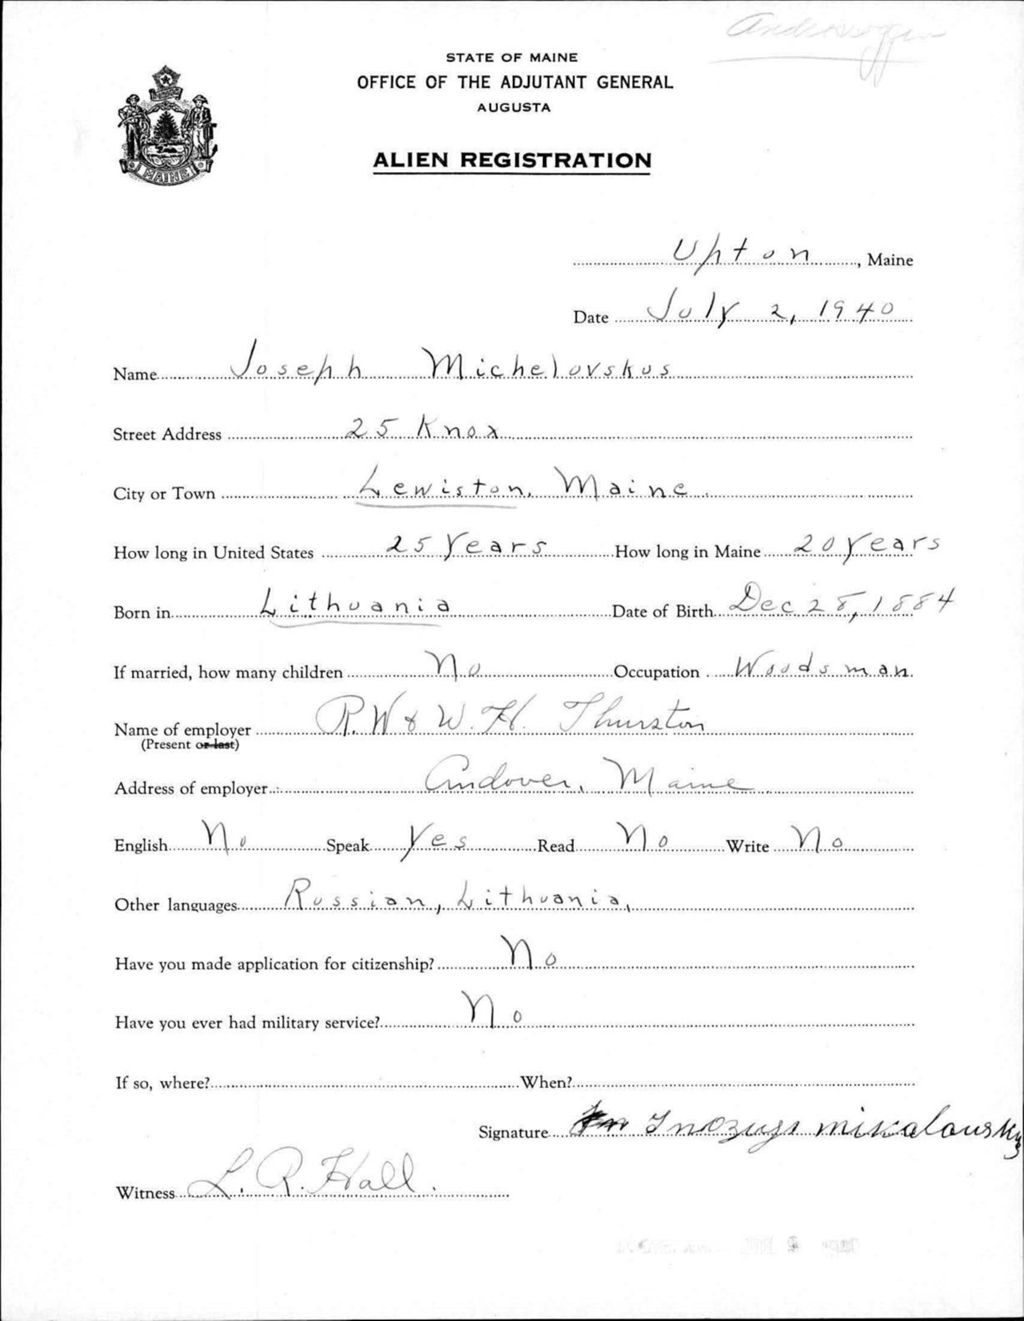 Androscoggin
STATE OF MAINE
OFFICE OF THE ADJUTANT GENERAL
AUGUSTA
ALIEN REGISTRATION
MAINE
Upton, Maine
Date July 2, 1940
Name Joseph Michelovskus
Street Address 25 Knox
City or Town Lewiston, Maine
How long in United States 25 Years How long in Maine 20 Years
Born in Lithuania Date of Birth Dec 28, 1884
If married, how many children No Occupation Woodsman
Name of employer R.W & W.H. Thurston
(Present or last)
Address of employer Andover, Maine
English No Speak Yes Read No Write No
Other languages Russian, Lithuania,
Have you made application for citizenship? No
Have you ever had military service? No
If so, where? When?
Signature
Witness L. R. Hall.